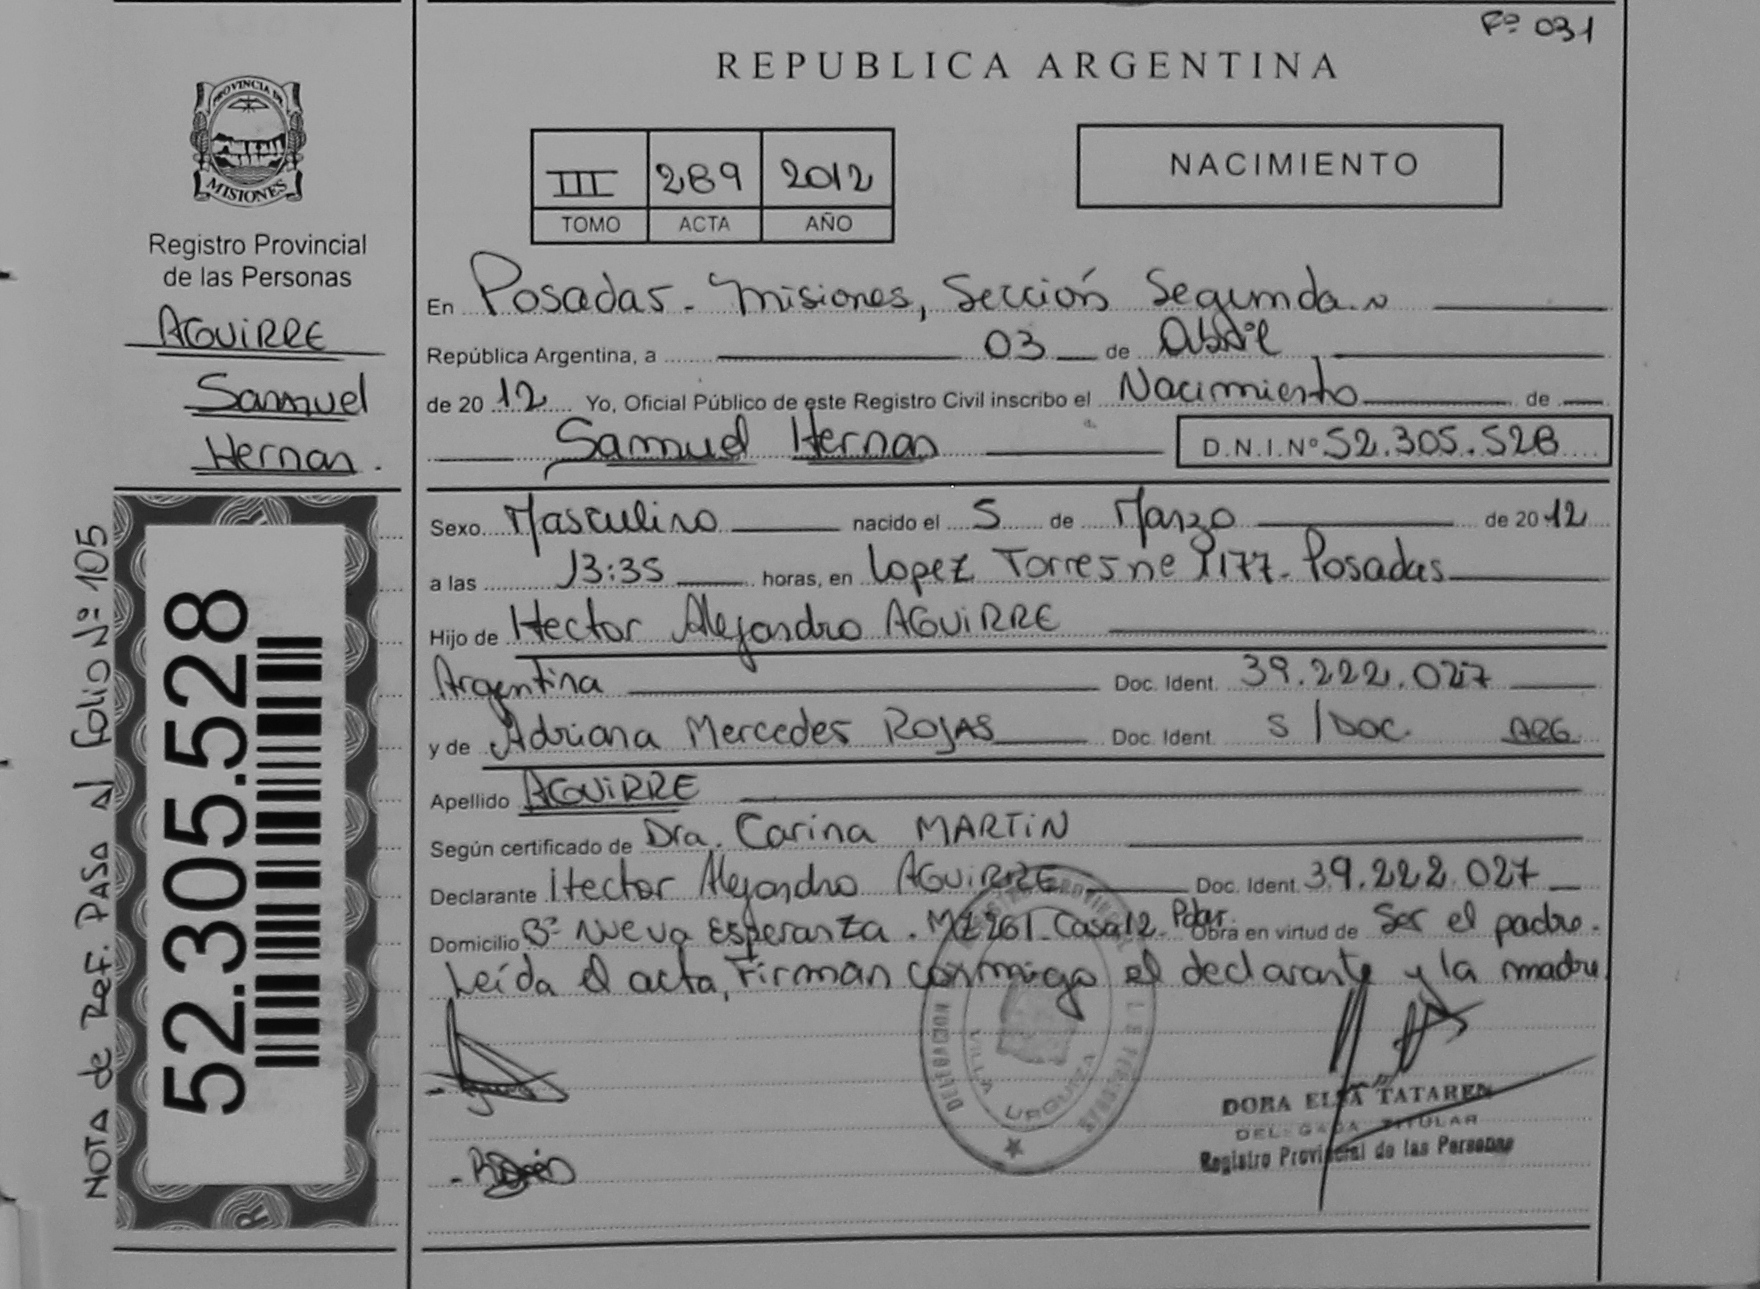 Fº 031
REPUBLICA ARGENTINA
PROVINCIA DE
MISIONES
Registro Provincial
de las Personas
AGUIRRE
Samuel
Hernan.
NOTA de REF. PASA al folio Nº 105
52.305.528
III 289 2012
TOMO ACTA AÑO
NACIMIENTO
En Posadas - Misiones, Sección Segunda.
República Argentina, a 03 de Abril
de 2012 Yo, Oficial Público de este Registro Civil inscribo el Nacimiento de
Samuel Hernan D.N.I.Nº 52.305.528
Sexo Masculino nacido el 5 de Marzo de 2012
a las 13:35 horas, en Lopez Torres ne 1177 - Posadas
Hijo de Hector Alejandro AGUIRRE
Argentina Doc. Ident. 39.222.027
y de Adriana Mercedes ROJAS Doc. Ident. S/DOC. ARG
Apellido AGUIRRE
Según certificado de Dra. Carina MARTIN
Declarante Hector Alejandro AGUIRRE Doc. Ident. 39.222.027
Domicilio Bº Nueva Esperanza. MZ 261 - Casa 12. Pdas. Obra en virtud de Ser el padre.
Leída el acta, Firman conmigo el declarante y la madre
VILLA URQUIZA
DORA ELSA TATAREN
DELEGADA TITULAR
Registro Provincial de las Personas